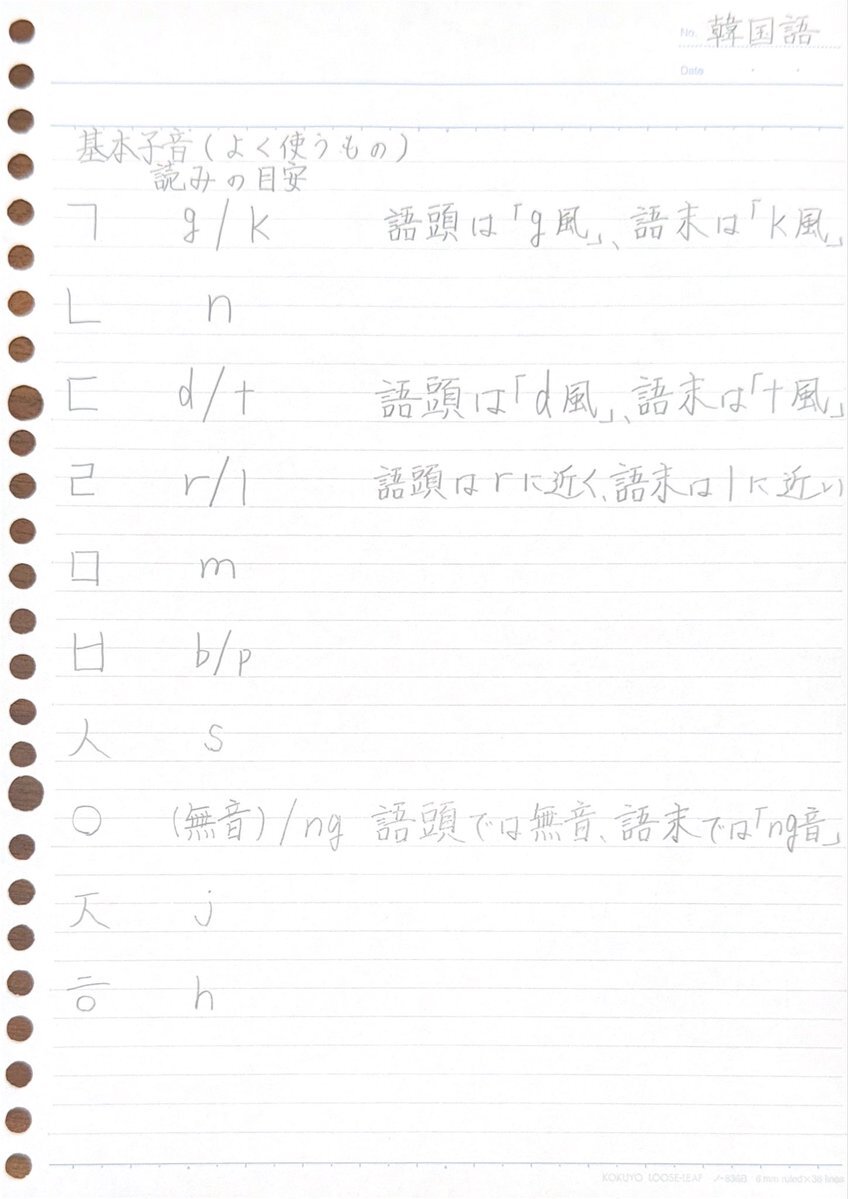 No. 韓国語
Date
基本子音(よく使うもの)
読みの目安
ㄱ g/k 語頭は「g風」、語末は「k風」
ㄴ n
ㄷ d/t 語頭は「d風」、語末は「t風」
ㄹ r/l 語頭はrに近く、語末はlに近い
ㅁ m
ㅂ b/p
ㅅ s
ㅇ (無音)/ng 語頭では無音、語末では「ng音」
ㅈ j
ㅎ h
KOKUYO LOOSE-LEAF ノ-836B 6mm ruled×36 lines